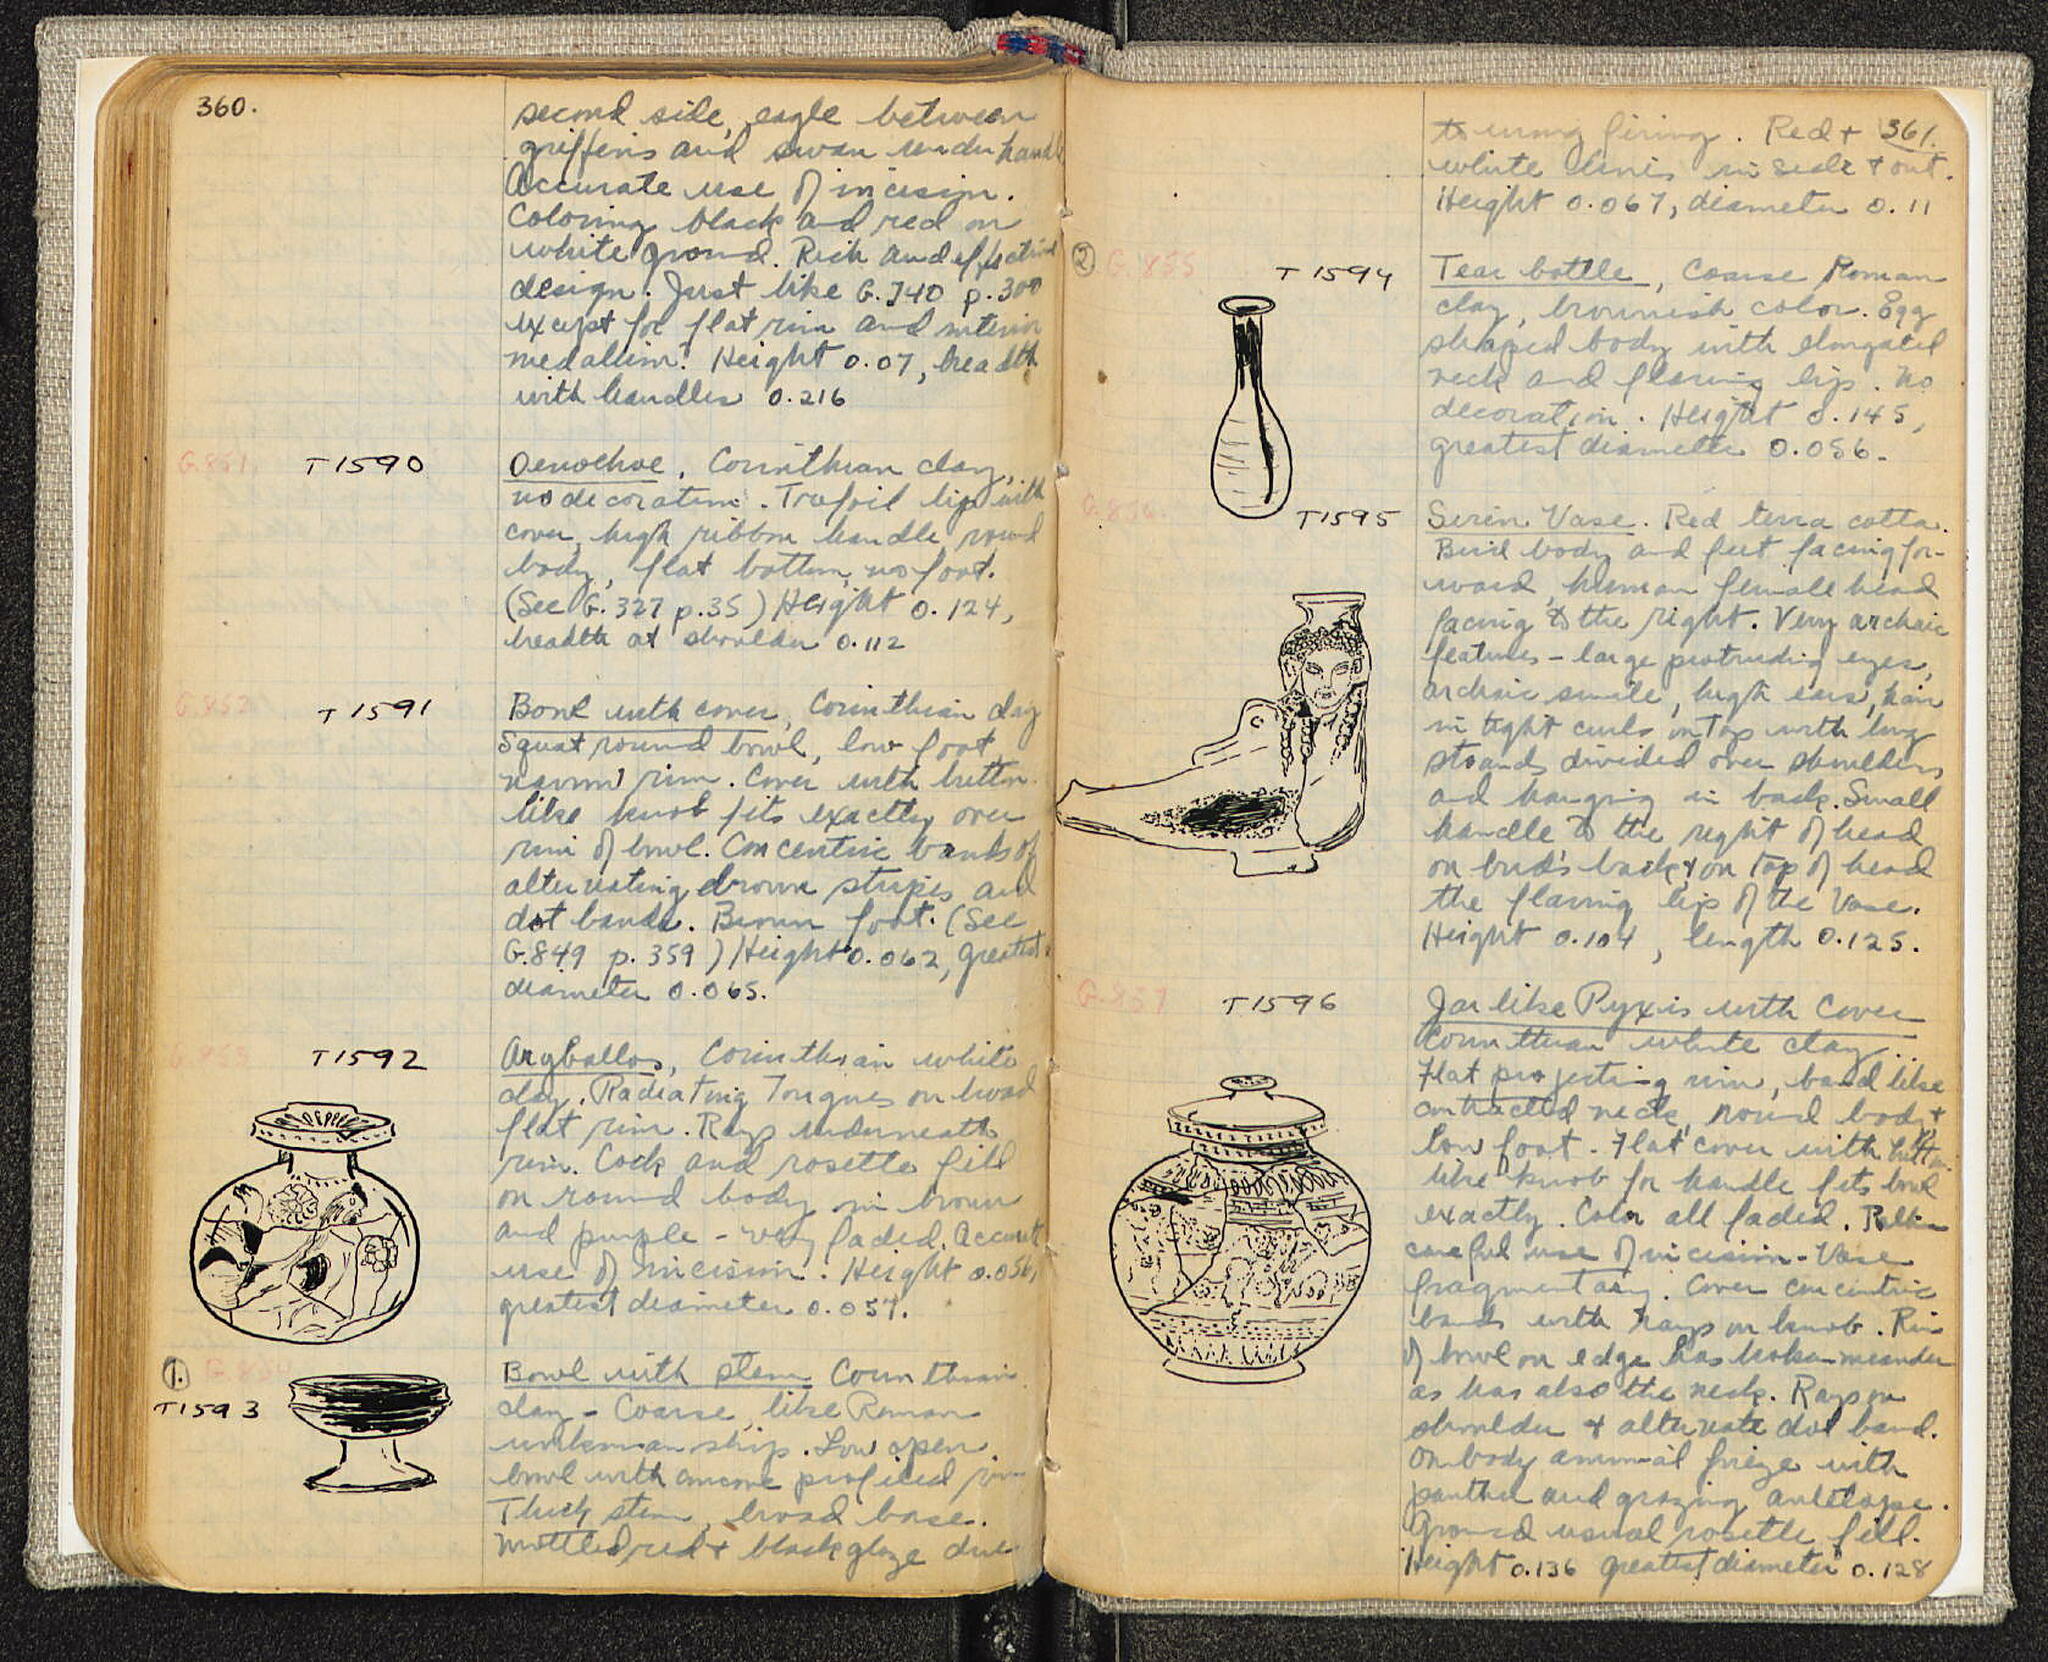 360.
second side, eagle between
griffins and swan under handle
Accurate use of incision.
Coloring black and red on
white ground. Rich and effective
design. Just like G.740 p.300
except for flat rim and interior
medallion. Height 0.07, breadth
with handles 0.216
G.851 T1590 Oenochoe, Corinthian clay,
no decoration. Trefoil lip with
cover, high ribbon handle, round
body, flat bottom, no foot.
(See G.327 p.35) Height 0.124,
breadth at shoulder 0.112
G.852 T1591 Bowl with cover, Corinthian clay
Squat round bowl, low foot,
narrow rim. Cover with button
like knob fits exactly over
rim of bowl. Concentric bands of
alternating brown stripes and
dot bands. Brown foot. (See
G.849 p.359) Height 0.062, greatest
diameter 0.065.
G.853 T1592 Aryballos, Corinthian white
clay. Radiating Tongues on broad
flat rim. Rays underneath
rim. Cock and rosette fill
on round body in brown
and purple - very faded. Accurate
use of incision. Height 0.056,
greatest diameter 0.057.
1. G.854 T1593 Bowl with stem Corinthian
clay - Coarse, like Roman
workmanship. Low open
bowl with concave profiled rim
Thick stem, broad base.
Mottled red + black glaze due
361.
to wrong firing. Red +
white lines inside + out.
Height 0.067, diameter 0.11
2 G.855 T1594 Tear bottle, Coarse Roman
clay, brownish color. Egg
shaped body with elongated
neck and flaring lip. No
decoration. Height 0.145,
greatest diameter 0.056.
G.856. T1595 Siren Vase. Red terra cotta.
Bird body and feet facing for-
ward, human female head
facing to the right. Very archaic
features - large protruding eyes,
archaic smile, high ears, hair
in tight curls on top with long
strands divided over shoulders
and hanging in back. Small
handle to the right of head
on bird's back & on top of head
the flaring lip of the Vase.
Height 0.104, length 0.125.
G.857 T1596 Jar like Pyxis with Cover
Corinthian white clay.
Flat projecting rim, band like
contracted neck, round body +
low foot. Flat cover with button
like knob for handle fits bowl
exactly. Color all faded. Rather
careful use of incision - Vase
fragmentary. Cover concentric
bands with rays on knob. Rim
of bowl on edge has broken meander
as has also the neck. Rays on
shoulder + alternate dot band.
On body animal frieze with
panther and grazing antelope.
Ground usual rosette fill.
Height 0.136 greatest diameter 0.128